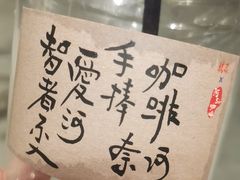 智者不入
愛河
手捧
咖啡
奈何